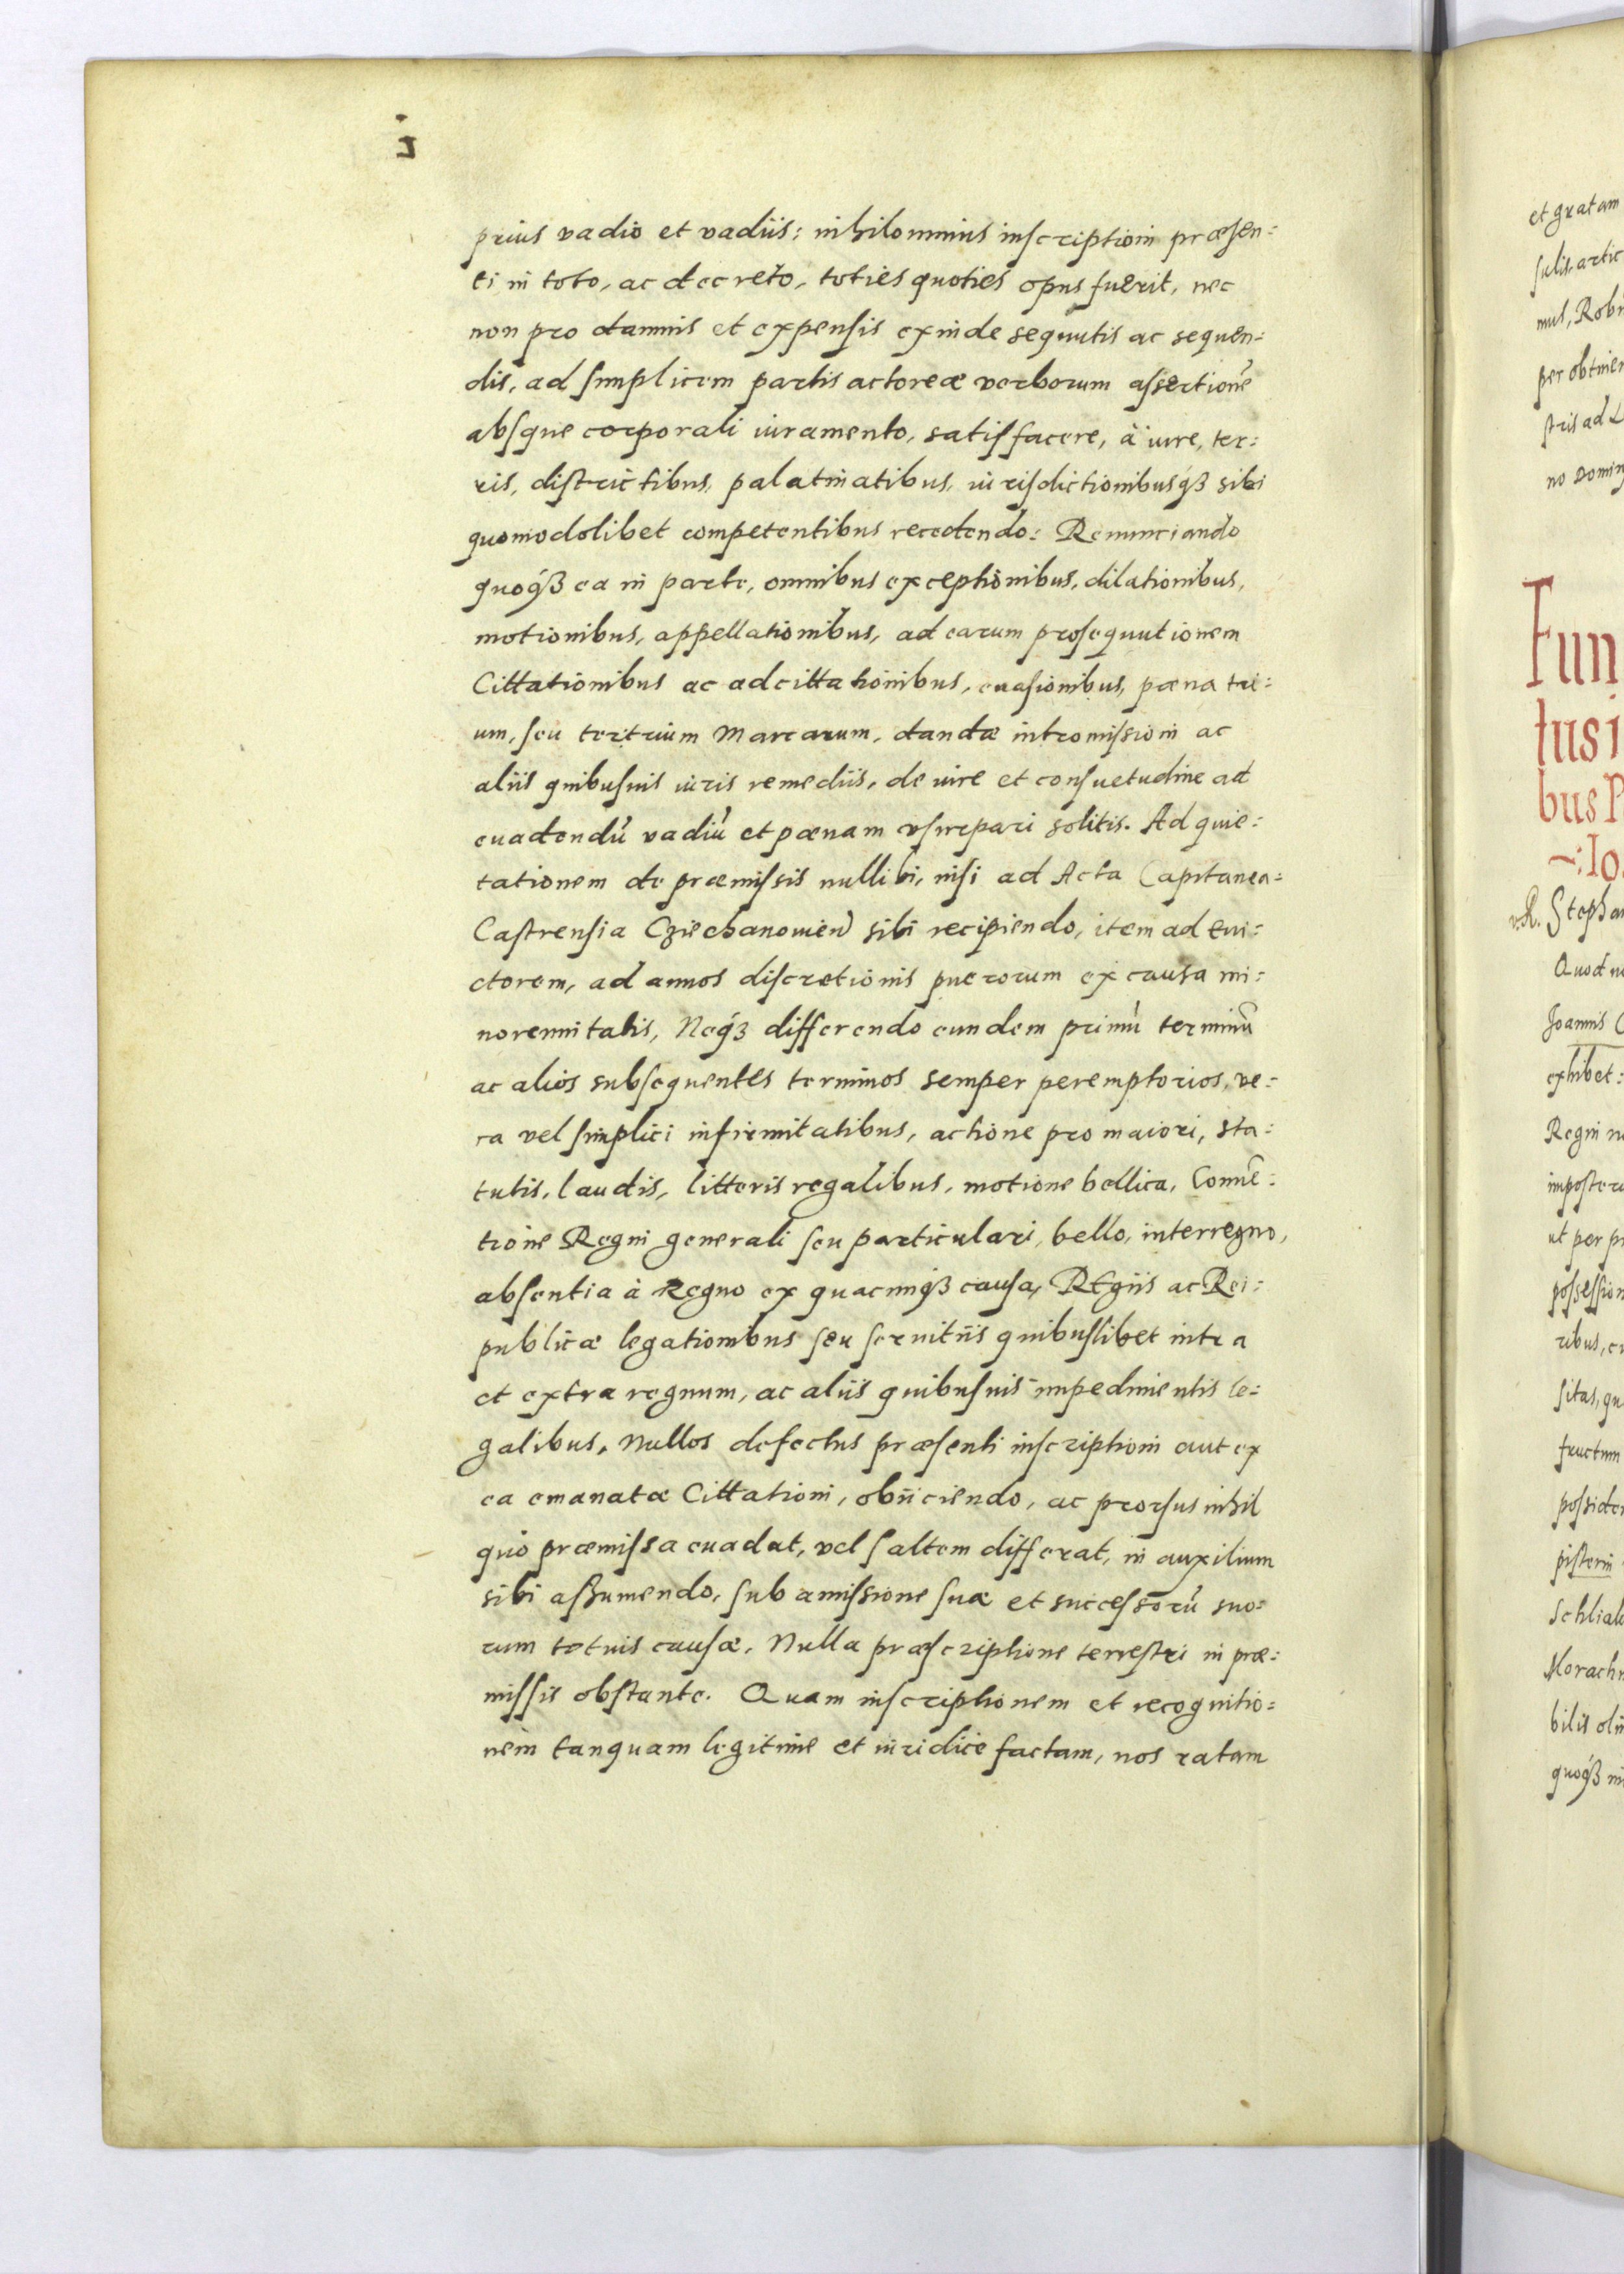 prius vadio et vadiis: nihilominus inscriptioni præsen:
ti in toto, ac decreto, toties quoties opus fuerit, nec
non pro damnis et expensis exinde sequutis ac sequen:
dis, ad simplicem partis actoreæ verborum assertionẽ
absque corporali iuramento, satisfacere, à iure, ter:
ris, districtibus, palatinatibus, iurisdictionibusq́ꝫ sibi
quomodolibet competentibus recedendo: Renunciando
quoq́ꝫ ea in parte, omnibus exceptionibus, dilationibus,
motionibus, appellationibus, ad earum prosequutionem
Cittationibus ac adcittationibus, euasionibus, pæna tri:
um, seu tertrium Marcarum, dandæ intromissioni ac
aliis quibusuis iuris remediis, de iure et consuetudine ad
euadendũ vadiũ et pænam vsurpari solitis. Ad quie:
tationem de præmissis nullibi, nisi ad Acta Capitanea:
Castrensia Cziechanouien) sibi recipiendo, item ad eui:
ctorem, ad annos discretionis puerorum ex causa mi:
norennitatis, Neq́ꝫ differendo eundem primũ terminũ
ac alios subsequentes terminos semper peremptorios, ve:
ra vel simplici infirmitatibus, actione pro maiori, sta:
tutis, laudis, litteris regalibus, motione bellica, Conuẽ:
tione Regni generali seu particulari, bello, interregno,
absentia à Regno ex quacunq́ꝫ causa, REgiis ac Rei:
publicæ legationibus seu seruitiis quibuslibet intra
et extra regnum, ac aliis quibusuis impedimentis le:
galibus, Nullos defectus præsenti inscriptioni aut ex
ea emanatæ Cittationi, obiiciendo, ac prorsus nihil
quo præmissa euadat, vel saltem differat, in auxilium
sibi assumendo, sub amissione suæ et successorũ suo:
rum totius causæ, Nulla præscriptione terrestri in præ:
missis obstante. Quam inscriptionem et recognitio:
nem tanquam legitime et iuridice factam, nos ratam
et gratam
Fun
tus i
bus P
~: Io
Stepha
Quod n
Joannis C
exhibet:
Regni n
ut per pr
ribus, c
sitas, qu
fructum
quoq́ꝫ